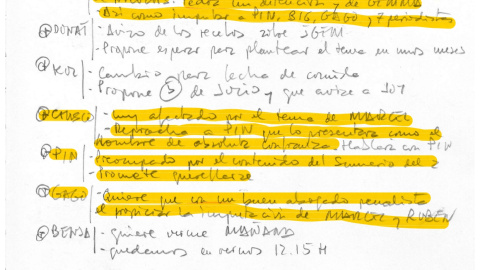 pedir mi detención y de GEMMA
- Así como imputar a PIN, BIG, GAGO y 7 periodistas
DONAT - Aviso de los recelos sobre JGFM
- Propone esperar para plantear el tema en unos meses
KOL - Cambio para fecha de comida
- Propone 5 de JULIO y que avise a JOT
- muy afectado por el tema de MARCEL
- Reprocha a PIN que lo presentara como el
hombre de absoluta confianza. Hablará con PIN
PIN - Preocupado por el contenido del Sumario del 2
- Promete querellarse
GAGO - Quiere que con un buen abogado penalista
el propiciar la imputación de MARCEL y RUBEN
BENJA - quiere verme MAÑANA
- quedamos en vernos 12.15 H